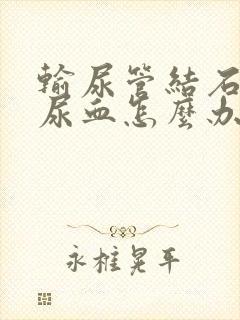 輸尿管結石
尿血怎麼办
永樁晃平